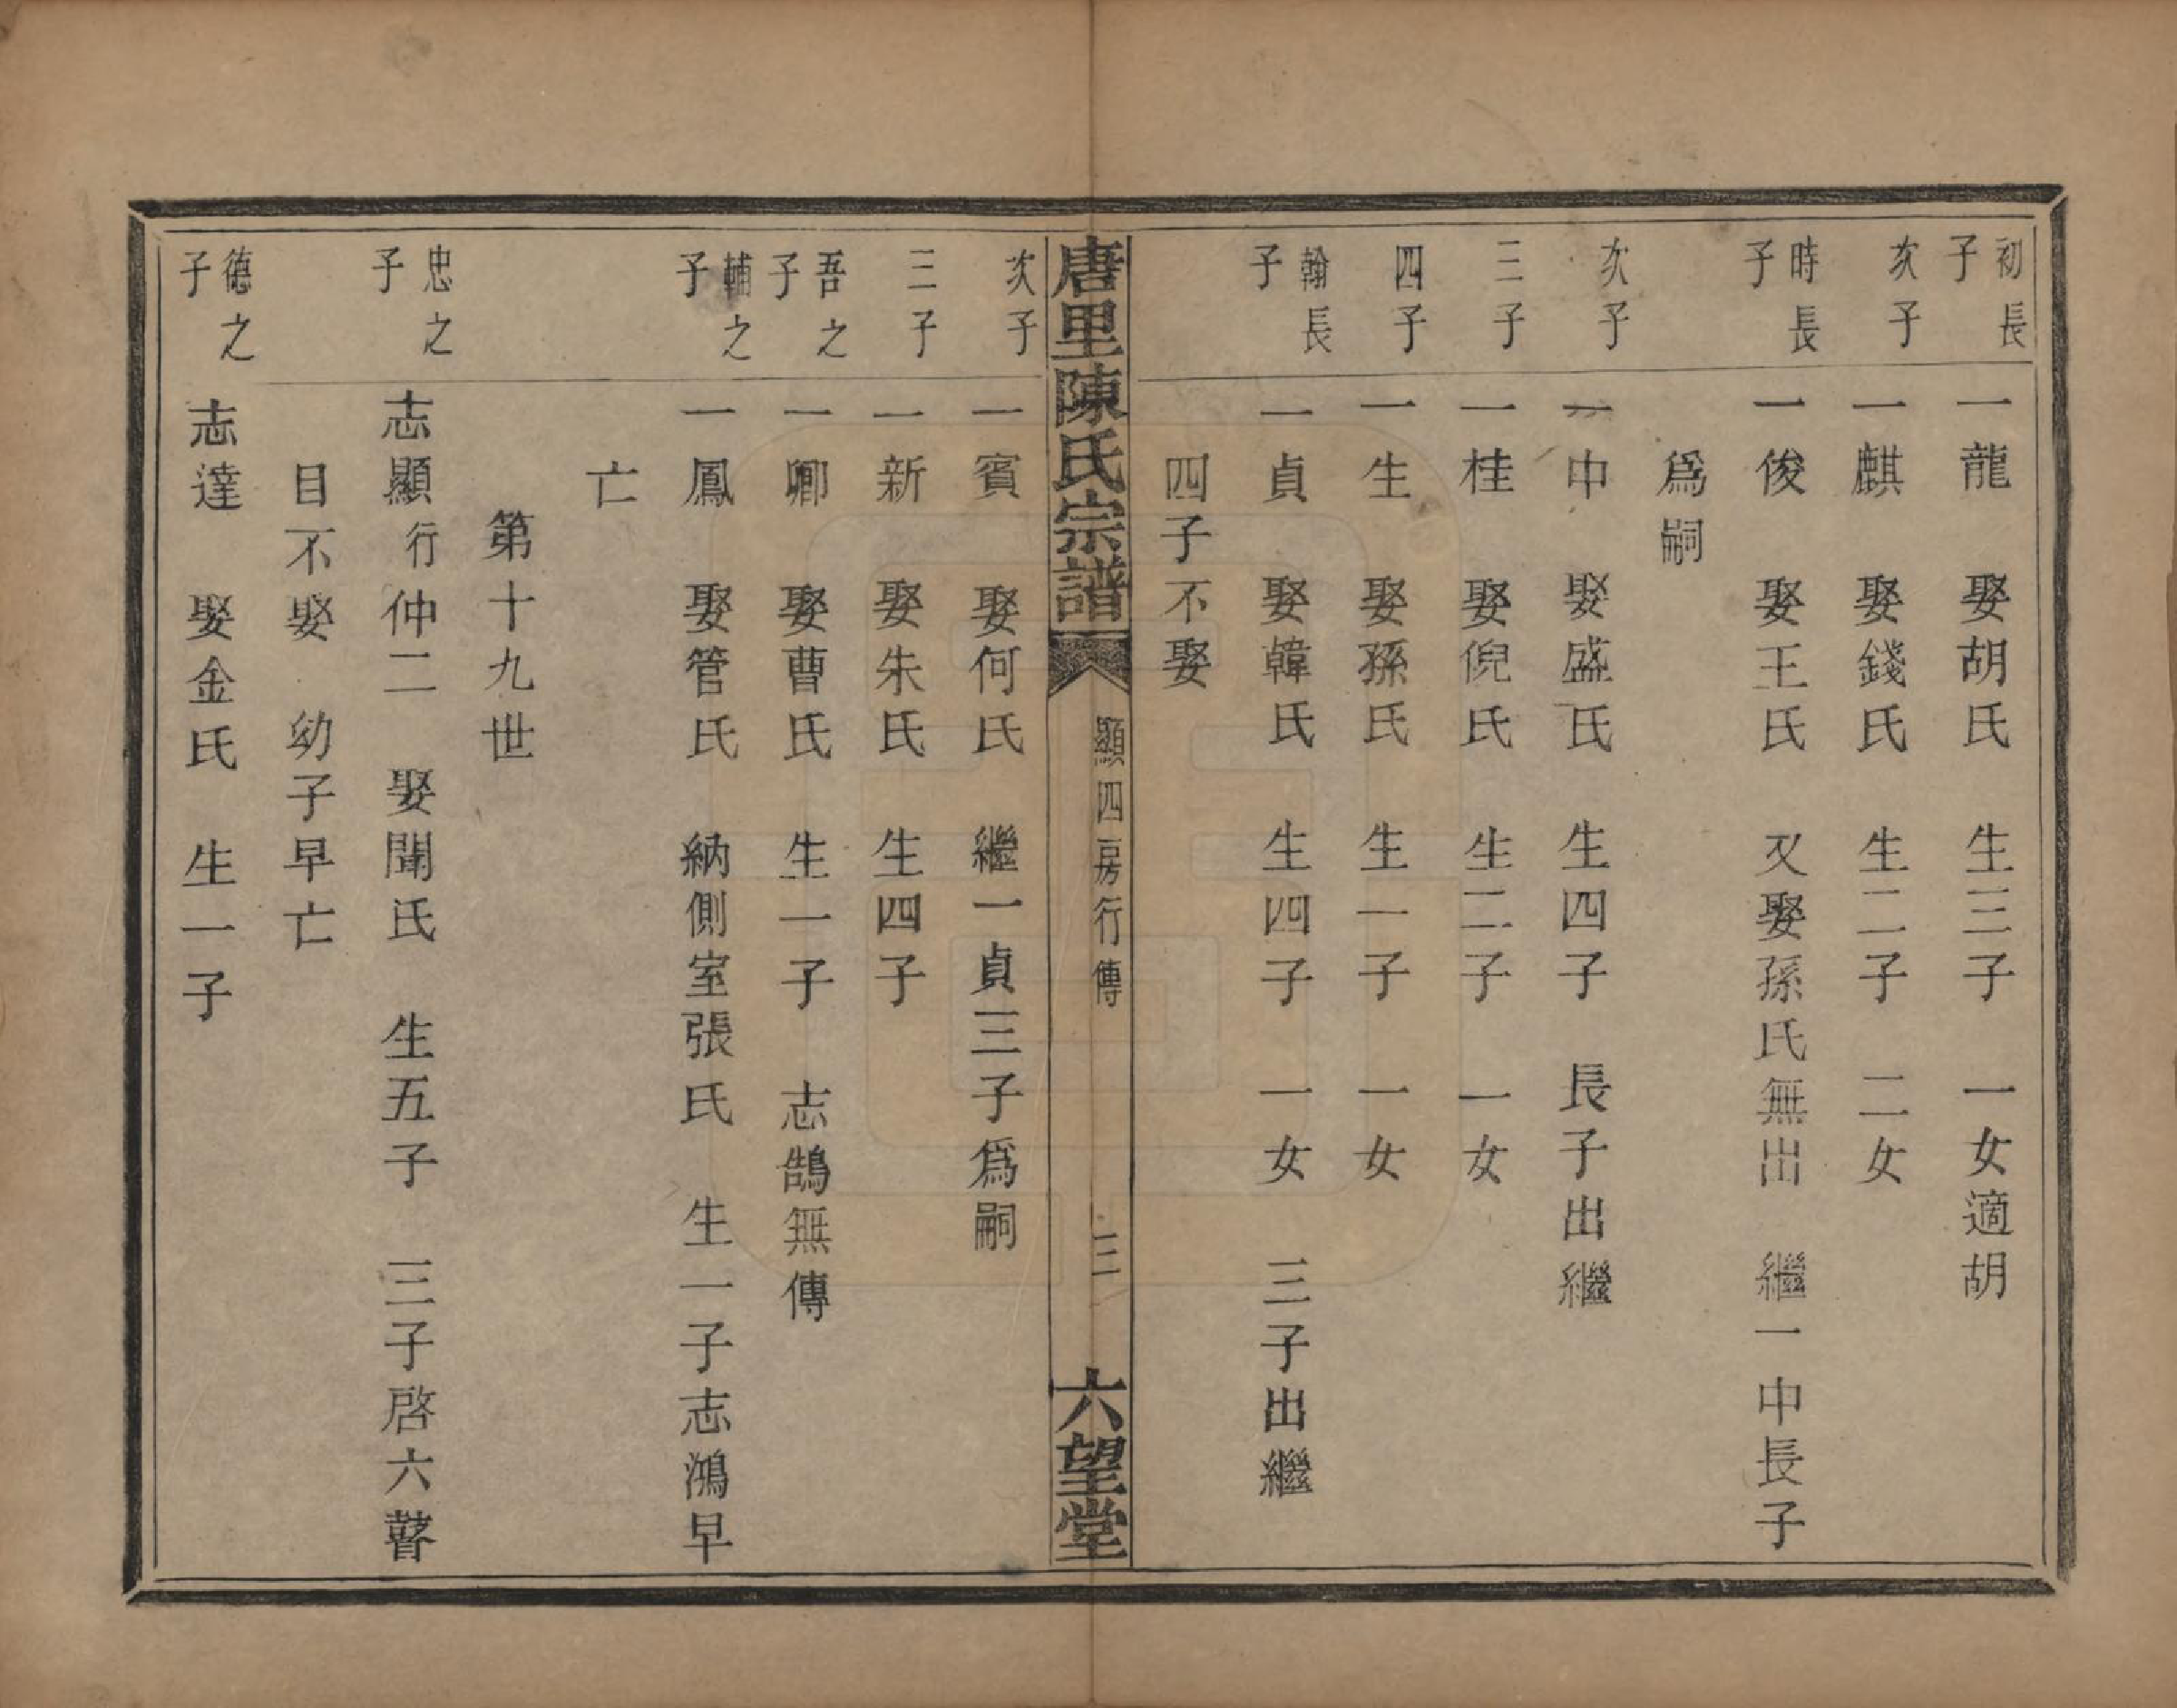 初長子　一龍　娶胡氏　生三子　一女適胡
次子　一麒　娶錢氏　生二子　二女
時長子　一俊　娶王氏　又娶孫氏無出　繼一中長子
爲嗣
次子　一中　娶盛氏　生四子　長子出繼
三子　一桂　娶倪氏　生二子　一女
四子　一生　娶孫氏　生一子　一女
翰長子　一貞　娶韓氏　生四子　一女　三子出繼
四子不娶
唐里陳氏宗譜　顯四房行傳　三　六望堂
次子　一賓　娶何氏　繼一貞三子爲嗣
三子　一新　娶朱氏　生四子
吾之子　一卿　娶曹氏　生一子　志鵠無傳
輔之子　一鳳　娶管氏　納側室張氏　生一子志鴻早
亡
第十九世
忠之子　志顯行仲二　娶聞氏　生五子　三子啓六瞽
目不娶　幼子早亡
德之子　志達　娶金氏　生一子